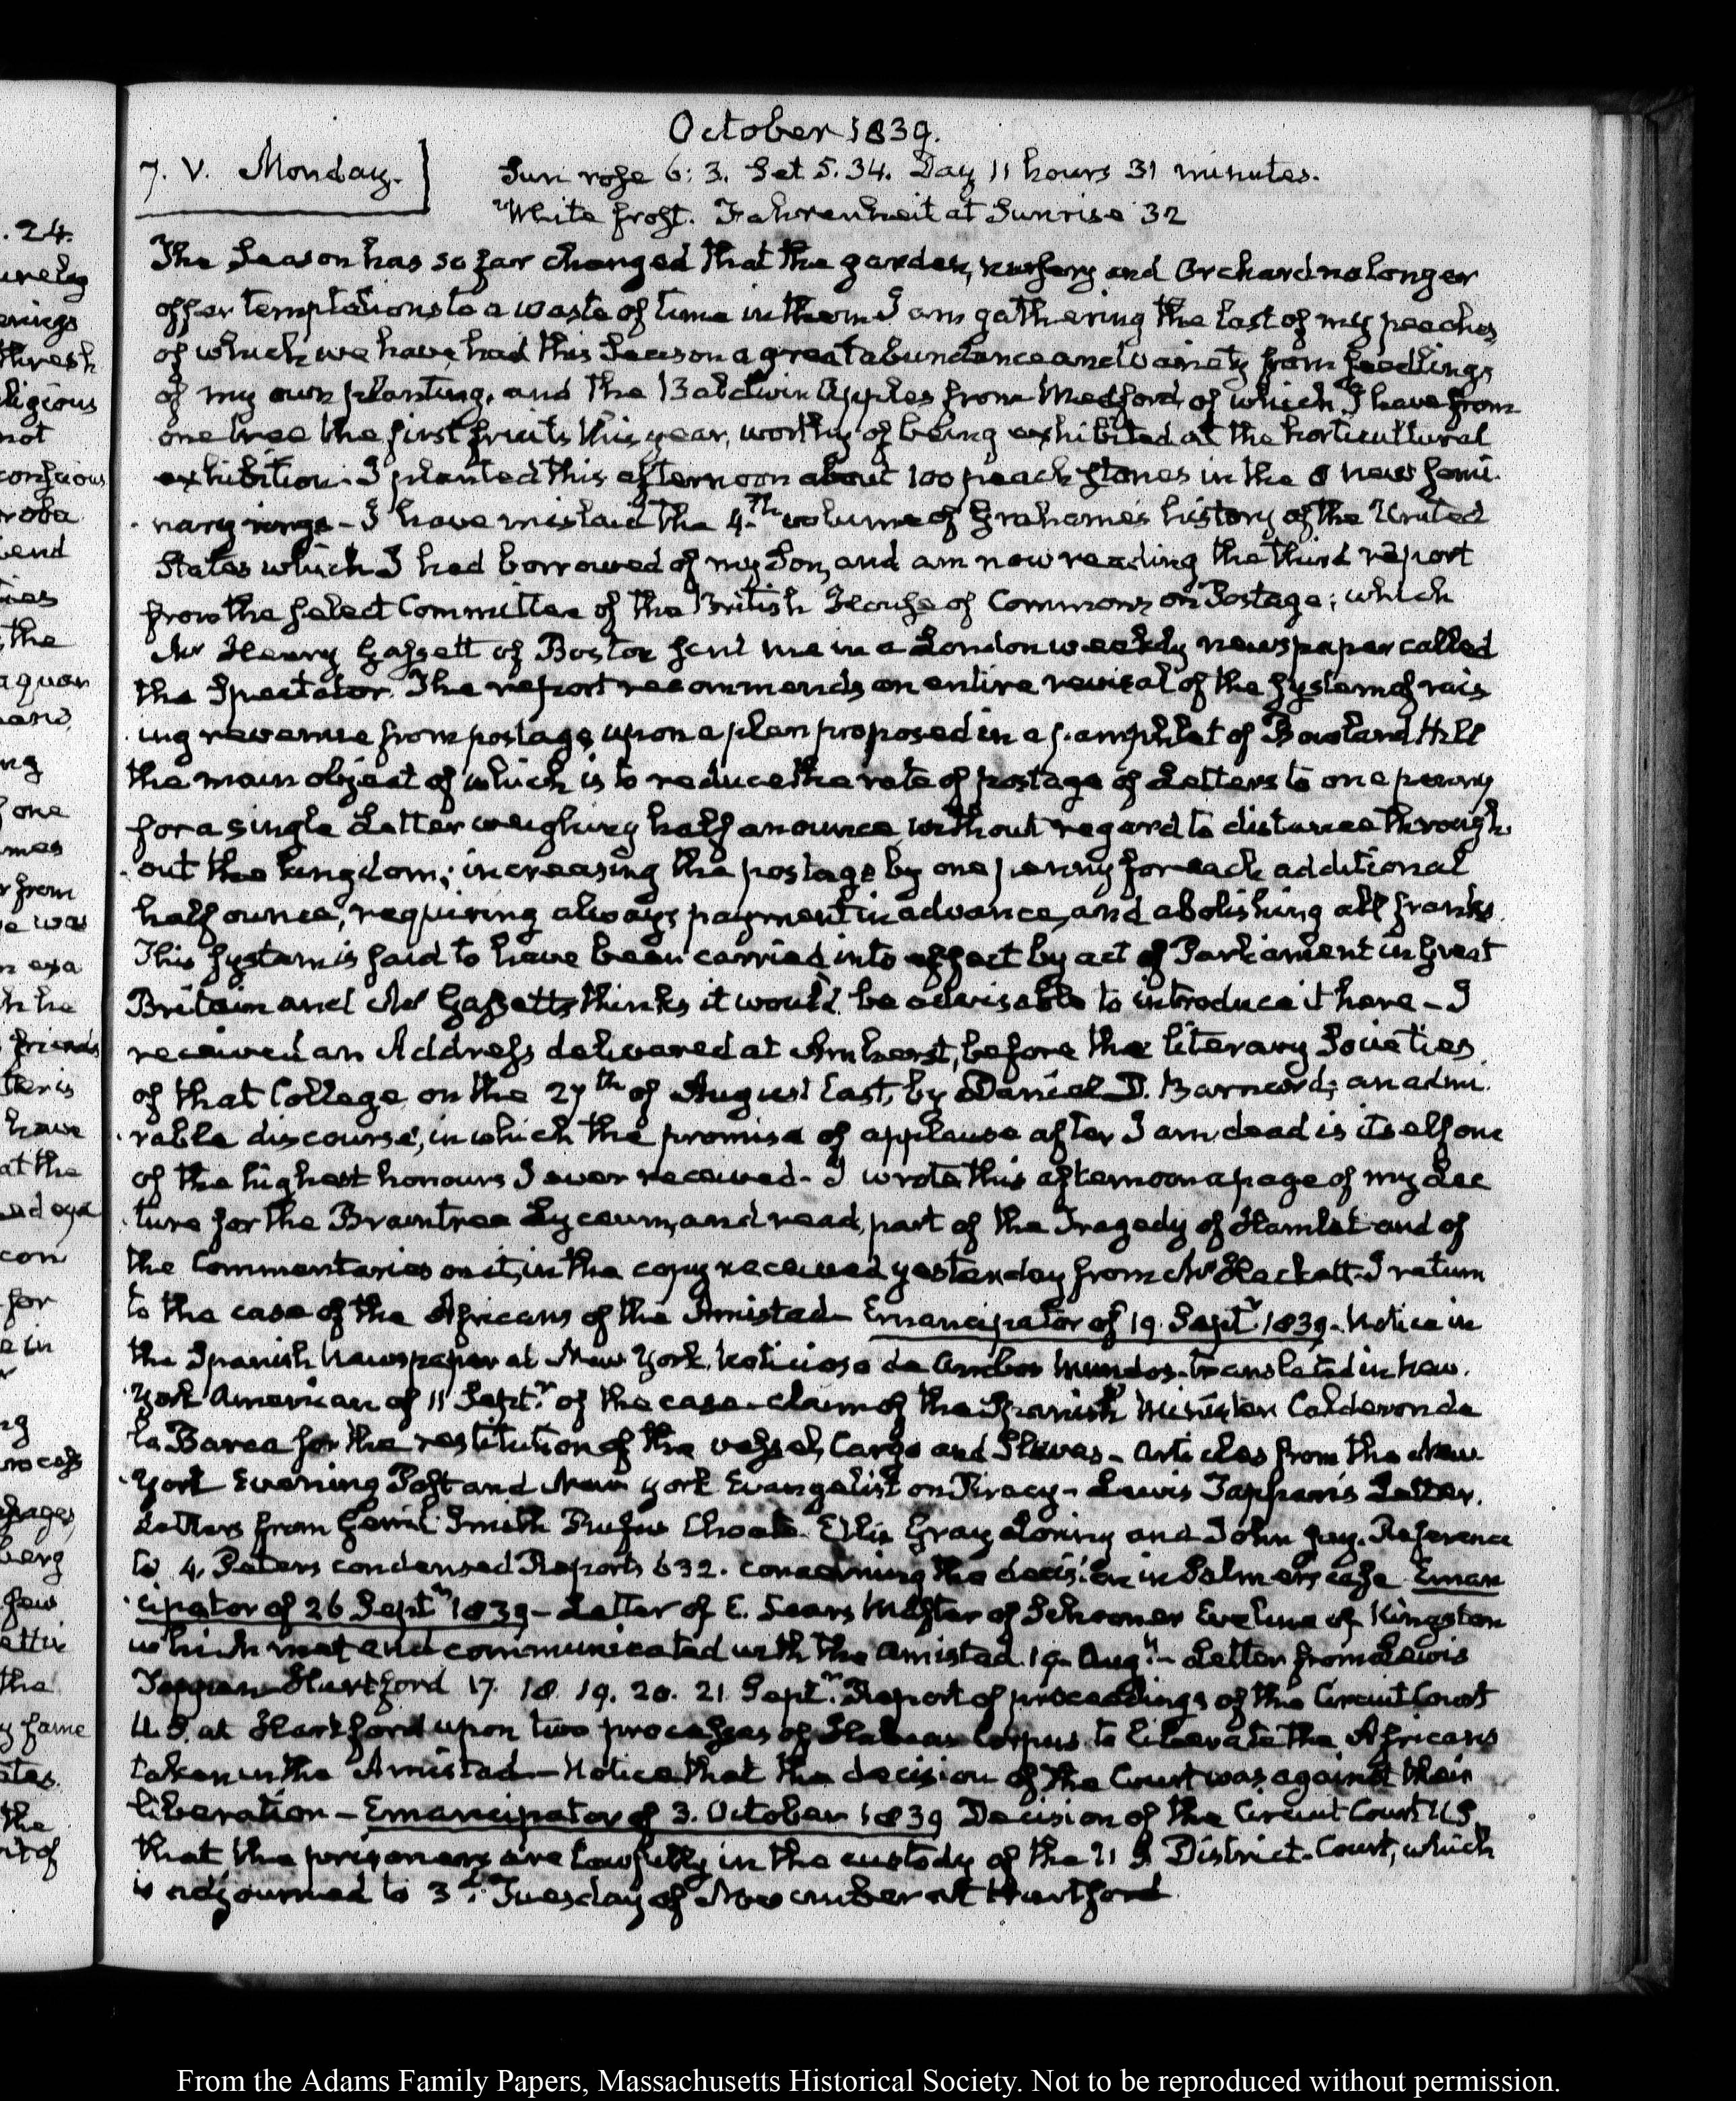 October 1839.
7. V. Monday.
Sun rose 6: 3. Set 5. 34. Day 11 hours 31 minutes.
White frost. Fahrenheit at Sunrise 32
The Season has so far changed that the garden, nursery and Orchard no longer
offer temptations to a waste of time in them I am gathering the last of my peaches
of which we have had this Season a great abundance and variety from seedlings
of my own planting, and the Baldwin Apples from Medford, of which I have from
one tree the first fruits this year, worthy of being exhibited at the horticultural
exhibition. I planted this afternoon about 100 peach stones in the 8 new semi-
nary rings - I have mislaid the 4.th volume of Grahame's history of the United
States which I had borrowed of my Son, and am now reading the third report
from the select Committee of the British House of Commons on Postage; which
Mr Henry Gassett of Boston sent me in a London weekly newspaper called
the Spectator. The report recommends an entire revisal of the system of rais
ing revenue from postage, upon a plan proposed in a pamphlet of Rowland Hill
the main object of which is to reduce the rate of postage of Letters to one penny
for a single Letter weighing half an ounce, without regard to distance through-
out the kingdom; increasing the postage by one penny for each additional
half ounce; requiring always payment in advance, and abolishing all franks.
This system is said to have been carried into effect by act of Parliament in Great
Britain and Mr Gassett thinks it would be advisable to introduce it here - I
received an Address delivered at Amherst, before the literary Societies
of that College, on the 27th of August last, by Daniel D. Barnard; an admi-
rable discourse, in which the promise of applause after I am dead is itself one
of the highest honours I ever received - I wrote this afternoon a page of my Lec
ture for the Braintree Lyceum, and read, part of the Tragedy of Hamlet and of
the Commentaries on it, in the copy received yesterday from Mr Hackett. I return
to the case of the Africans of the Amistad - Emancipator of 19. Septr 1839 - Notice in
the Spanish Newspaper at New York, Noticioso de Ambos Mundos - translated in New.
York American of 11 Septr of the case - claim of the Spanish Minister Calderon de
la Barca for the restitution of the vessel, Cargo and Slaves - Articles from the New-
York Evening Post and New York Evangelist on Piracy - Lewis Tappan's Letter.
Letters from Gerrit Smith Rufus Choate. Ellis Gray Loring and John Jay. Reference
to 4. Peters condensed Reports 632. concerning the decision in Palmer's case. Eman
cipator of 26 Septr 1839 - Letter of E. Sears Master of Schooner Eveline of Kingston
which met and communicated with the Amistad. 19. Augt - Letter from Lewis
Tappan Hartford 17. 18. 19. 20. 21 Septr. Report of proceedings of the Circuit Court
U.S. at Hartford upon two processes of Habeas Corpus to liberate the Africans
taken in the Amistad - Notice that the decision of the Court was against their
liberation - Emancipator of 3. October 1839 Decision of the Circuit Court U.S.
that the prisoners are lawfully in the custody of the U S District-Court, which
is adjourned to 3d. Tuesday of November at Hartford
From the Adams Family Papers, Massachusetts Historical Society. Not to be reproduced without permission.